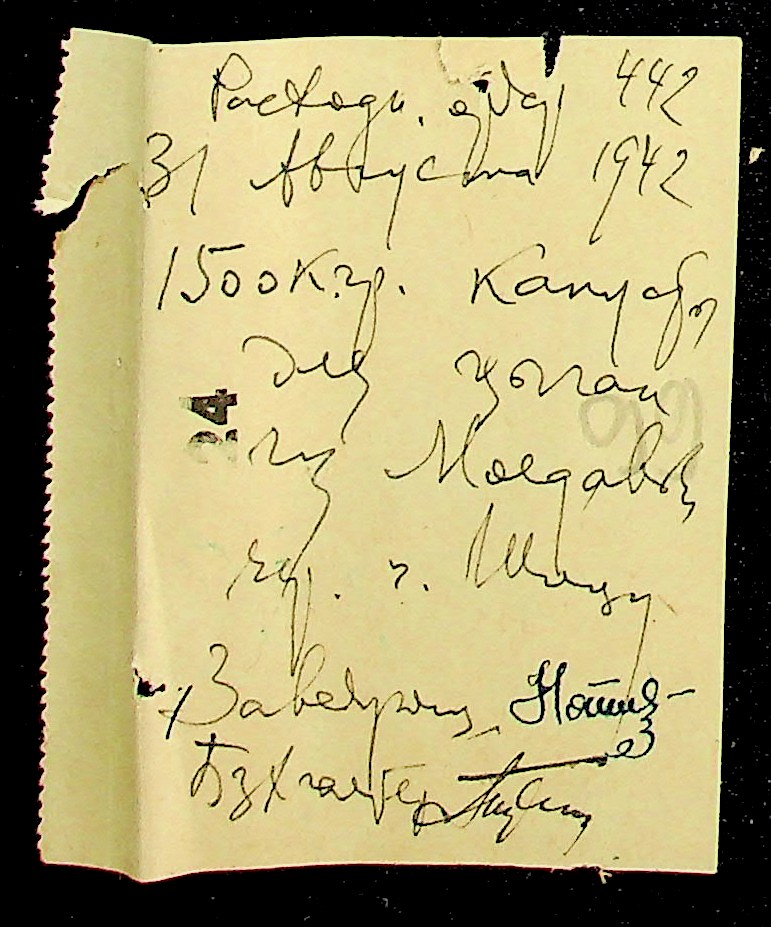 Расходн. ордер 442
31 Августа 1942
1500 к.гр. капусты
для цыган
24
из Молдавии
гр. г.
Заведующ.
Бухгалтер